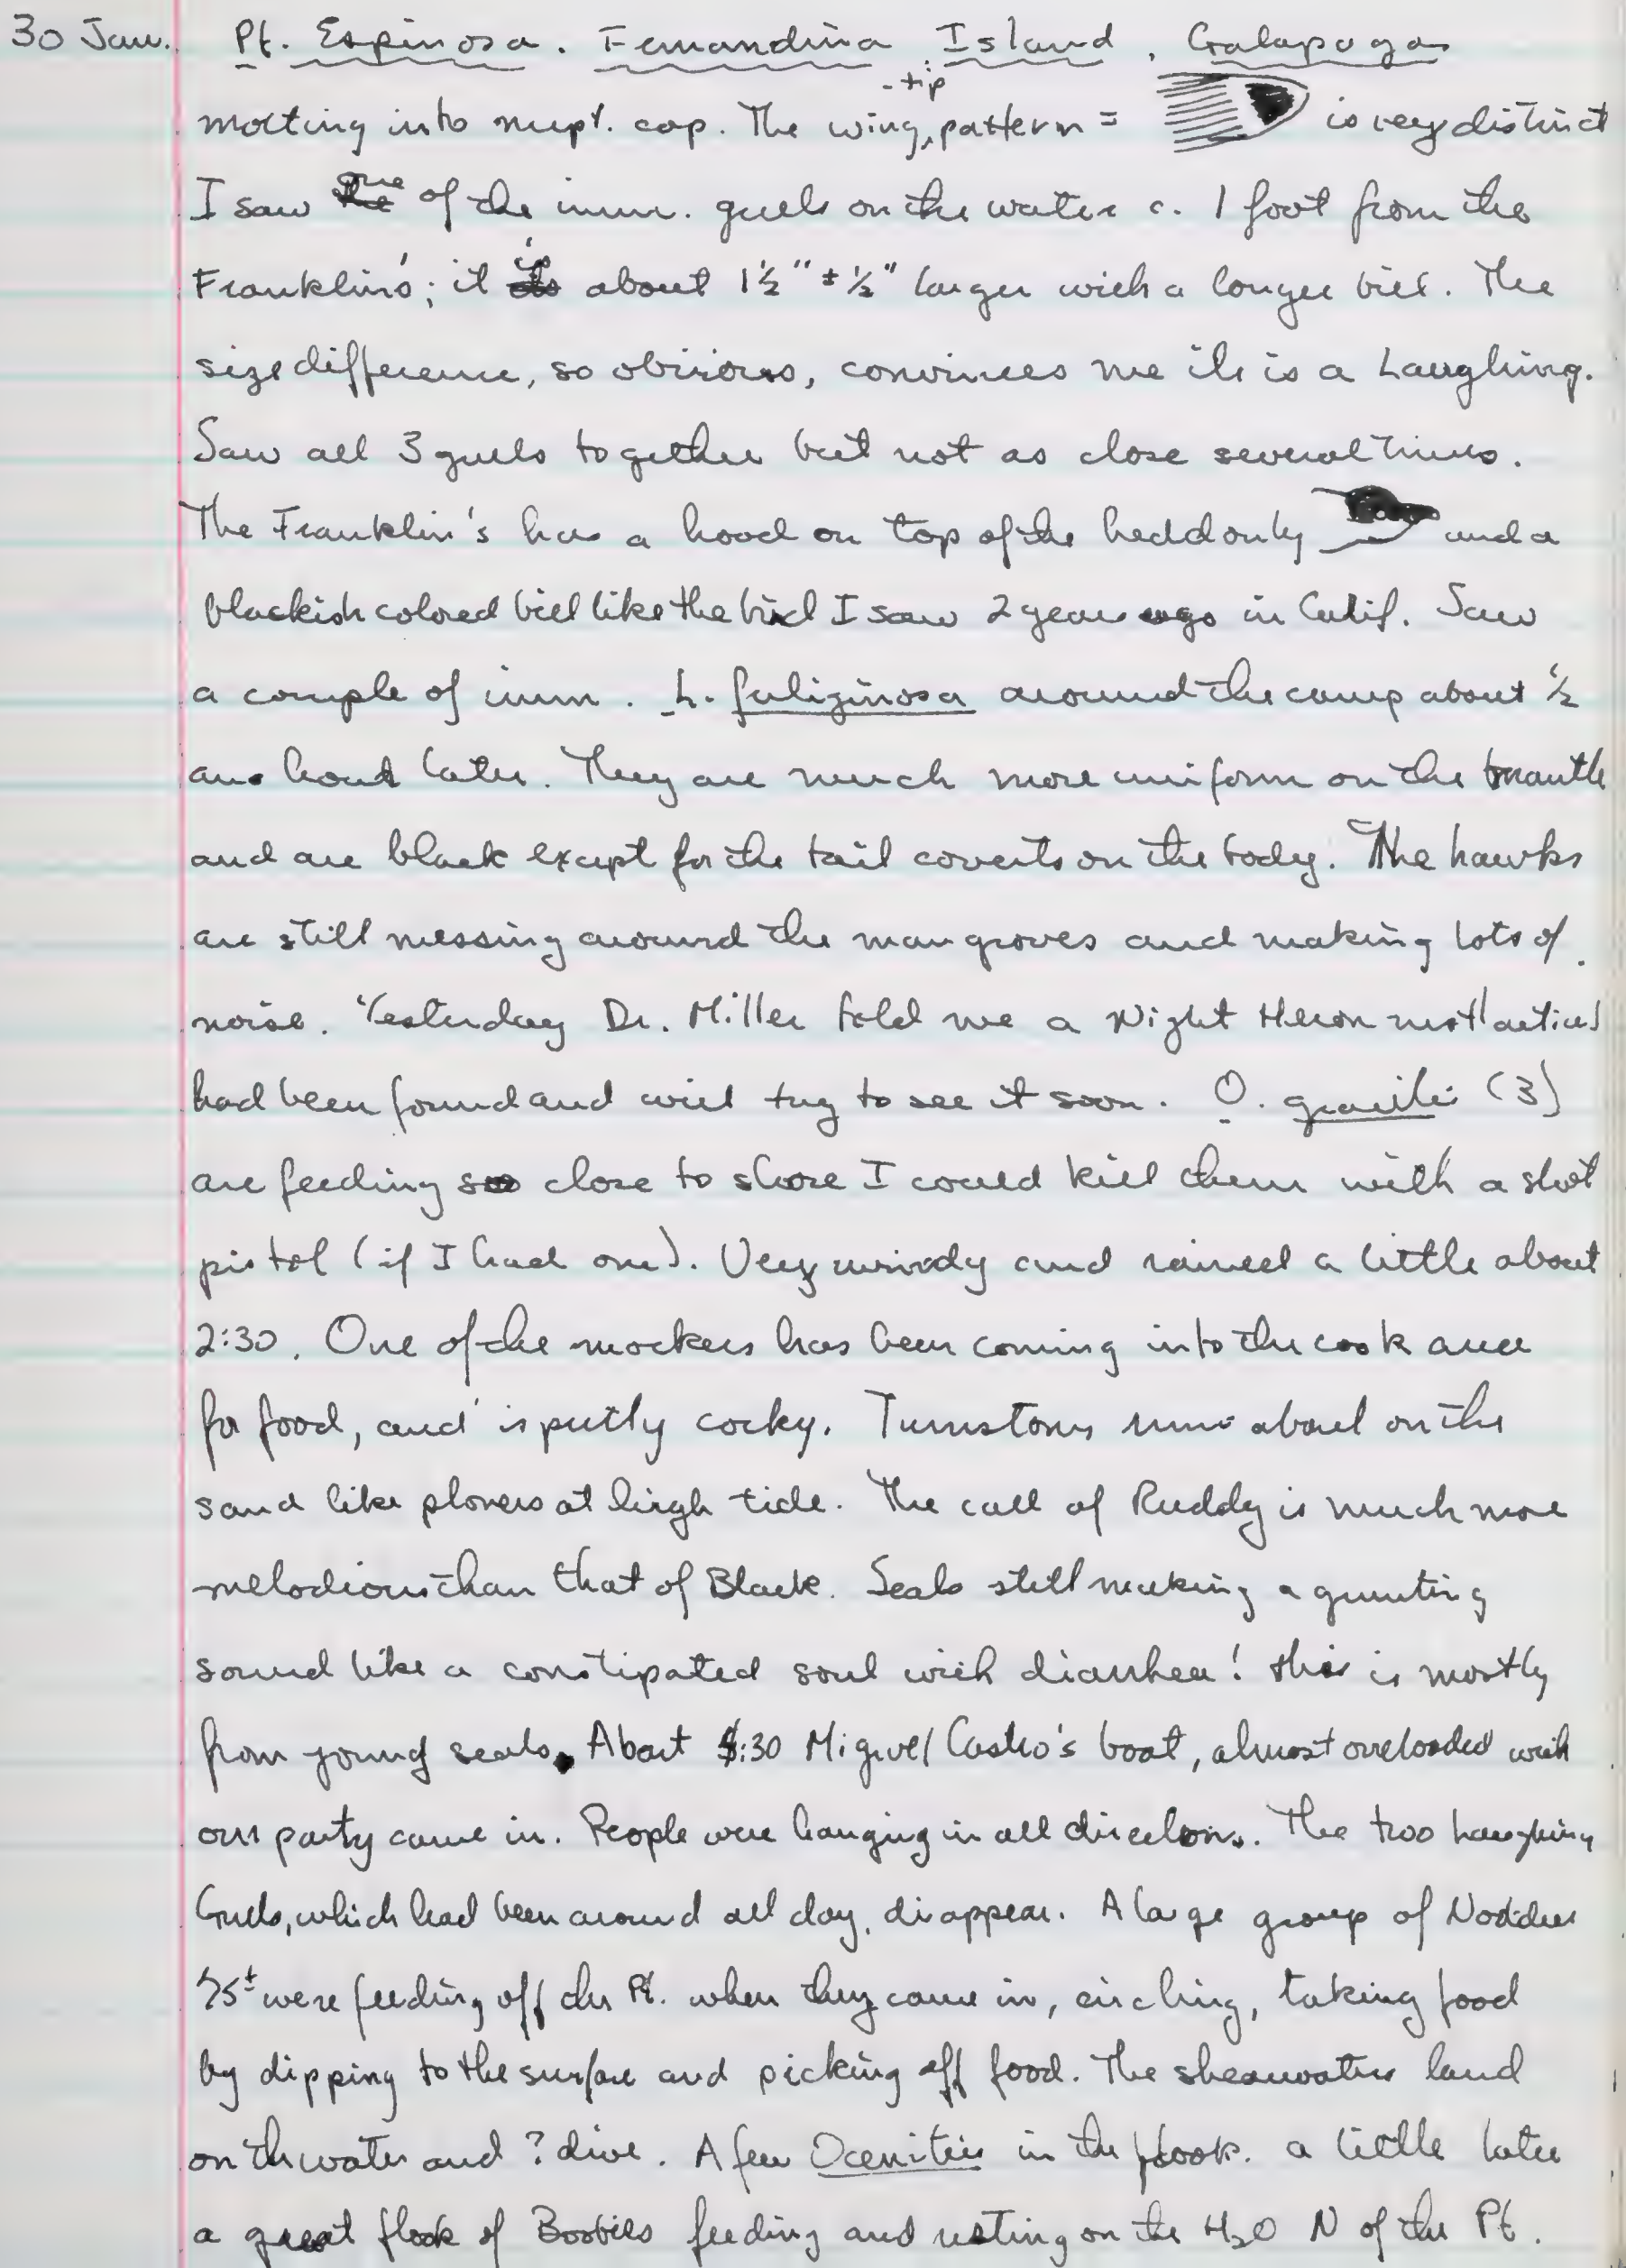 30 Jan. Pt. Espinosa. Fernandina Island, Galapagos
molting into nupt. cap. The wing-tip pattern = is very distinct
I saw one of the imm. gulls on the water c. 1 foot from the
Franklin's; it is about 1½" ± ½" larger with a longer bill. The
size difference, so obvious, convinces me it is a Laughing.
Saw all 3 gulls together but not as close several times.
The Franklin's has a hood on top of the head only and a
blackish colored bill like the bird I saw 2 years ago in Calif. Saw
a couple of imm. L. fuliginosa around the camp about ½
an hour later. They are much more uniform on the mantle
and are black except for the tail coverts on the body. The hawks
are still messing around the mangroves and making lots of
noise. Yesterday Dr. Miller told me a Night Heron nest (active)
had been found and will try to see it soon. O. gracilis (3)
are feeding so close to shore I could kill them with a shot
pistol (if I had one). Very windy and rained a little about
2:30. One of the mockers has been coming into the cook area
for food, and is pretty cocky. Turnstones run about on the
sand like plovers at high tide. The call of Ruddy is much more
melodious than that of Black. Seals still making a grunting
sound like a constipated soul with diarrhea! this is mostly
from young seals. About :30 Miguel Castro's boat, almost overloaded with
our party came in. People were hanging in all directions. The two Laughing
Gulls, which had been around all day, disappear. A large group of Noddies
75± were feeding off the Pt. when they came in, circling, taking food
by dipping to the surface and picking off food. The shearwaters land
on th water and ? dive. A few Oceanites in the flock. a little later
a great flock of Boobies feeding and resting on the H2O N of the Pt.